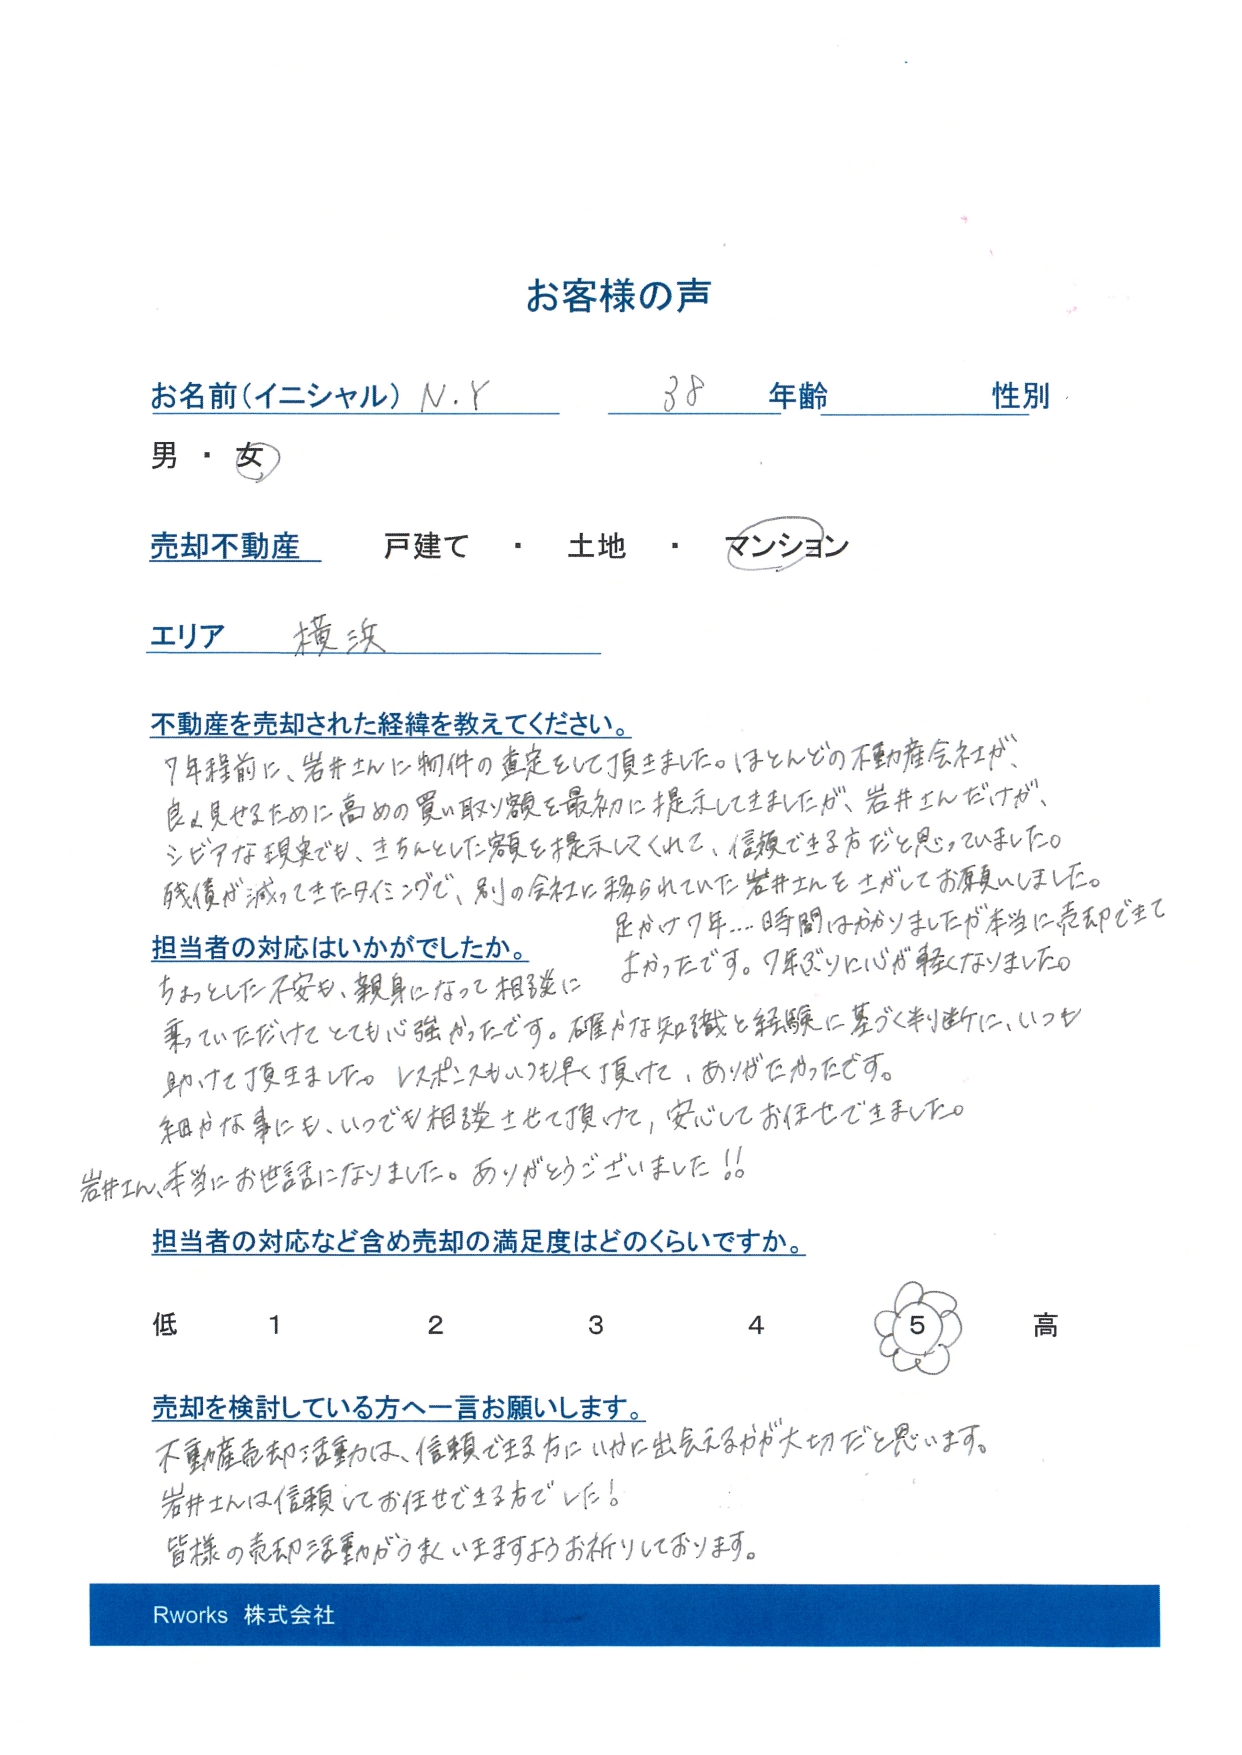 お客様の声
お名前（イニシャル） N.Y 38 年齢 性別
男 ・ 女
売却不動産 戸建て ・ 土地 ・ マンション
エリア 横浜
不動産を売却された経緯を教えてください。
7年程前に、岩井さんに物件の査定をして頂きました。ほとんどの不動産会社が、
良く見せるために高めの買い取り額を最初に提示してきましたが、岩井さんだけが、
シビアな現実でも、きちんとした額を提示してくれて、信頼できる方だと思っていました。
残債が減ってきたタイミングで、別の会社に移られていた岩井さんをさがしてお願いしました。
足かけ7年....時間はかかりましたが本当に売却できて
よかったです。7年ぶりに心が軽くなりました。
担当者の対応はいかがでしたか。
ちょっとした不安も、親身になって相談に
乗っていただけてとても心強かったです。確かな知識と経験に基づく判断に、いつも
助けて頂きました。レスポンスもいつも早く頂けて、ありがたかったです。
細かな事にも、いつでも相談させて頂けて、安心してお任せできました。
岩井さん、本当にお世話になりました。ありがとうございました!!
担当者の対応など含め売却の満足度はどのくらいですか。
低 1 2 3 4 5 高
売却を検討している方へ一言お願いします。
不動産売却活動は、信頼できる方にいかに出会えるかが大切だと思います。
岩井さんは信頼してお任せできる方でした!
皆様の売却活動がうまくいきますようお祈りしております。
Rworks 株式会社